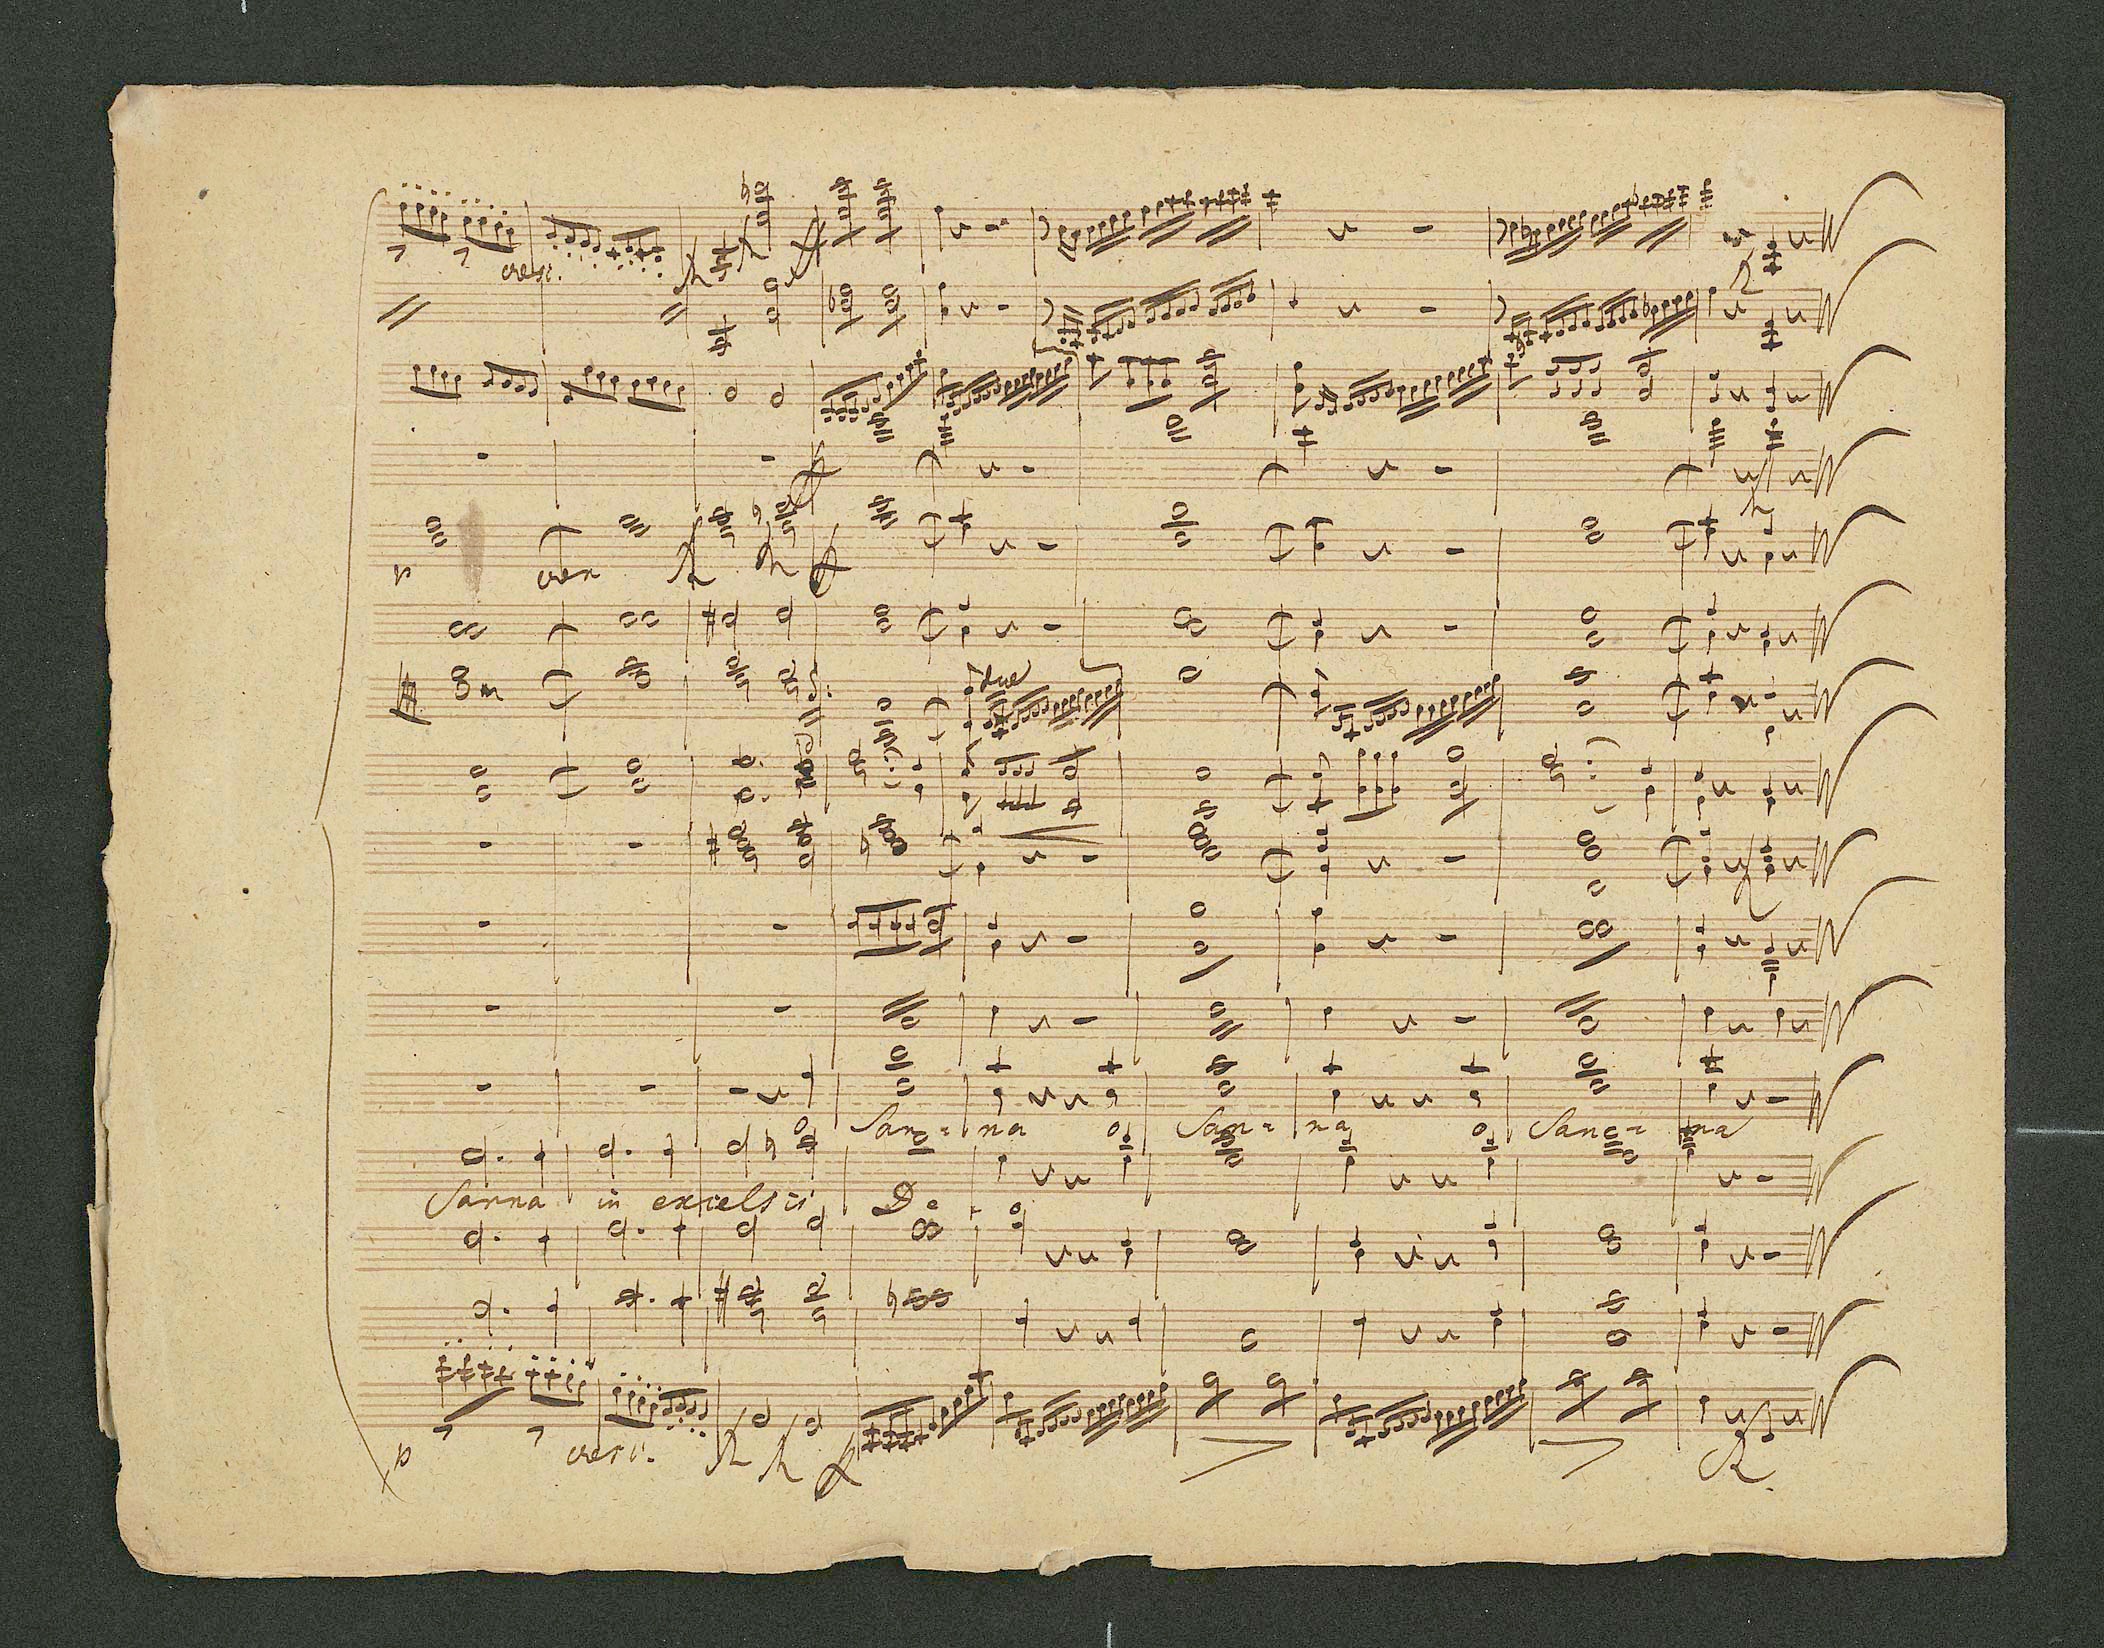 cresc.
p cres
due
San- na o San- na o San- na
Sanna in excelsis
p cresc.